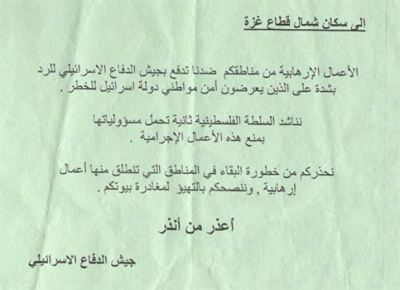 إلى سكان شمال قطاع غزة
الأعمال الإرهابية من مناطقكم ضدنا تدفع بجيش الدفاع الاسرائيلي للرد
بشدة على الذين يعرضون أمن مواطني دولة اسرائيل للخطر .
نناشد السلطة الفلسطينية ثانية تحمل مسؤولياتها
بمنع هذه الأعمال الإجرامية .
نحذركم من خطورة البقاء في المناطق التي تنطلق منها أعمال
إرهابية , وننصحكم بالتهيؤ لمغادرة بيوتكم .
أعذر من أنذر
جيش الدفاع الاسرائيلي